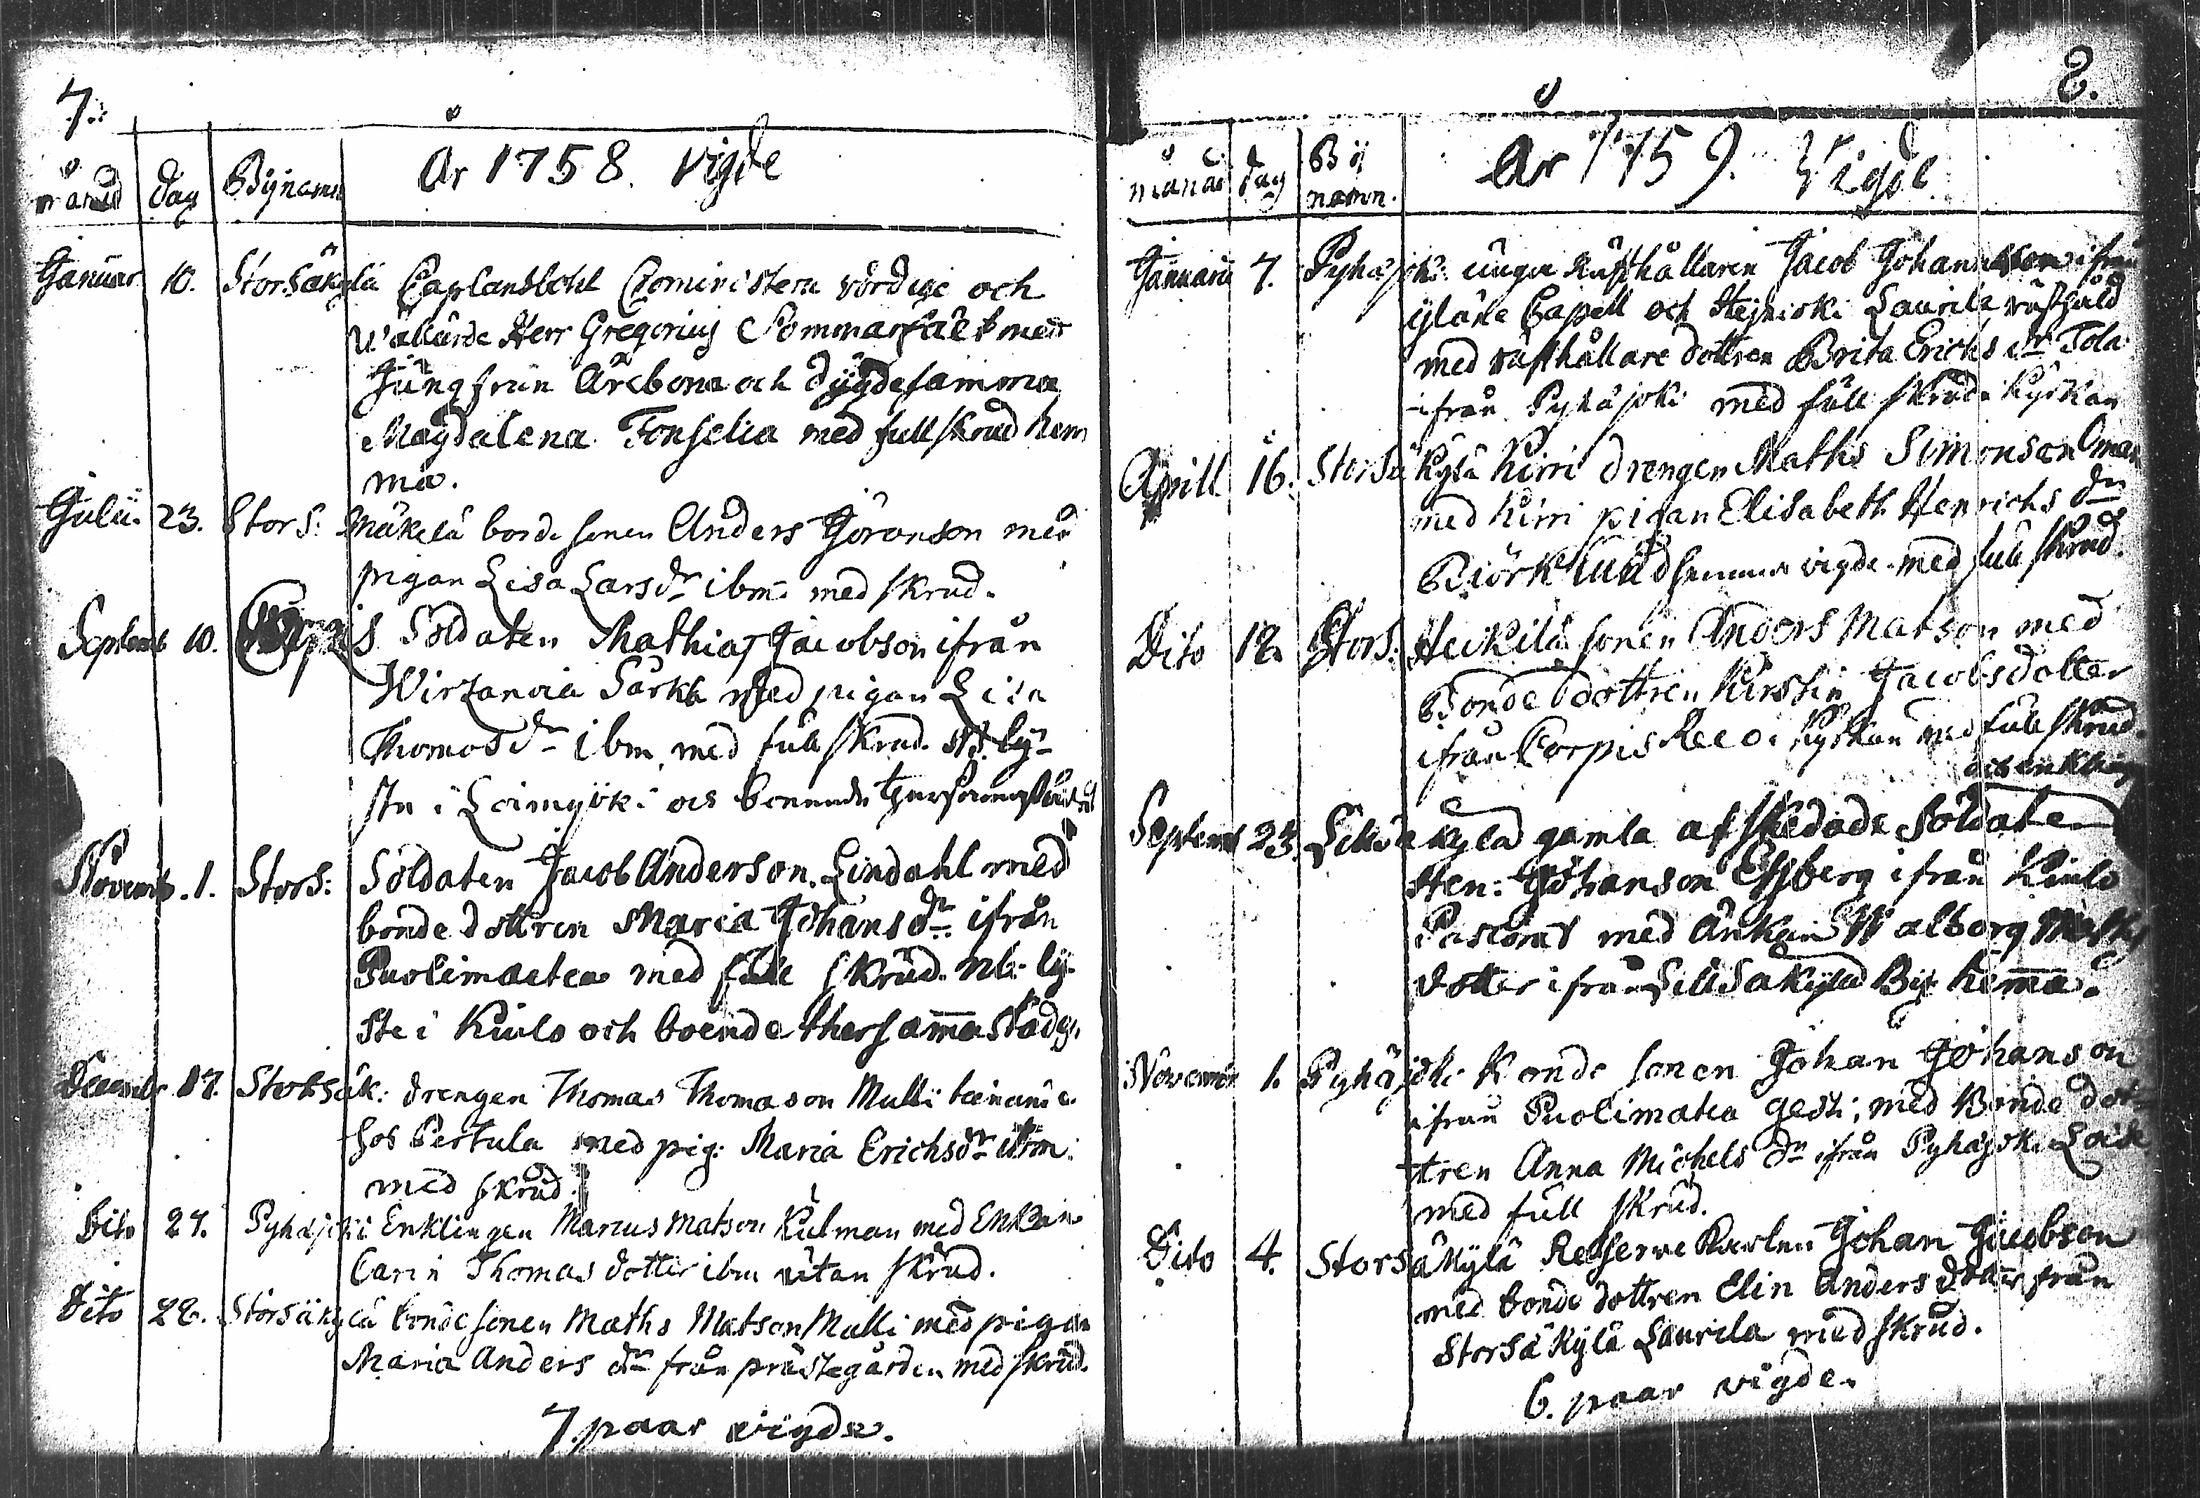 7.
månad dag Bynamn År 1758. Vigde
Januar 10. Storsäkylä Caplansbohl Comministern vördige och
Wällärde Herr Gregorius Sommarfält med
Jungfrun Ärebona och dygdesamma
Magdalena Fonselia med full skrud hem
ma.
Julii 23. Stors: Mäkelä bonde sonen Anders Göranson med
pigan Lisa Larsdr ibm. med skrud.
Septemb 10. Soldaten Mathias Jacobson ifrån
Wirzanoia Särkk med pigan Lisa
Thomasdr ibm. med full skrud. NB. ly-
ste i Loimijoki och boende
Novemb. 1. Stors: Soldaten Jacob Anderson Lindahl med
bonde dottren Maria Johansdr. ifrån
Puolimactca med full skrud. nb. ly-
ste i Kiulo och boende thersamma städs.
Decemb 17. Storsäk: drengen Thomas Thomason Mulli
hos Pertula med pig: Maria Erichsdr ibm:
med skrud.
Dito 27. Pyhäjoki Enklingen Marcus Matson Kulman med Enkan
Carin Thomas dotter ibm utan skrud.
Dito 28. Storsäkylä bonde sonen Maths Matson Mulli med pigan
Maria Anders dr från prästegården med skrud.
7. paar vigde.
8.
månad dag By namn. År 1759. Vigde
Januarii 7. Pyhäjoki unga Rusthållaren Jacob Johansson ifrån
Yläne Capell och Heinioki Laurila rusthåld
med rusthållare dottren Brita Erichs dr Tola
ifrån Pyhäjoki med full skrud i Kyrkan
Aprill 16. Storsäkylä Kirri drengen Maths Simonson
med Kirri pigan Elisabeth Henrichs dr
Björklund hemma vigde med full skrud.
Dito 18. Stors. Heikilä sonen Anders Matson med
Bonde dottren Kirstin Jacobsdotter
ifrån Corpis Reco i Kyrkan med full skrud.
enkling
Septemb 23. kylä gamla afskedade Soldaten
Hen: Johanson Essberg ifrån Kiulo
Pastorat med Änkan Walborg
dotter ifrån By hemma.
Novemb 1. Pyhäjoki Bonde sonen Johan Johanson
ifrån Puolimatca gesti; med Bonde dot-
tren Anna Michels dr ifrån Pyhäjoki
med full skrud.
Dito 4. Storsäkylä Reserve Karlen Johan Jacobson
med bonde dottren Elin Anders dotter från
Storsäkylä Laurila med skrud.
6. paar vigde.